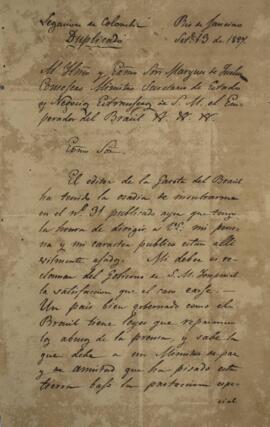 Legacion de Colombia Rio de Janeiro
Duplicado Set.e 13 de 1827
Al Illmo y Exmo Señor Marques de
Ministro Secretario de Estado
y Negocios Estrangeros de S. M. el Em-
perador del Brasil &. &. &.
Exmo Sor.
El editor de la Gaceta del Brasil
ha tenido la osadia de
en el nº 31 publicado ayer que tengo
la honra de dirigir a V.E. mi perso-
na y mi caracter publico estan alli
vilmente ajados. Mi deber es re-
clamar del Gobierno de S. M. Imperial
la satisfaccion que el caso exije.
Un pais bien gobernado como el
Brasil tiene leyes que
los abusos de la prensa, y sabe lo
que debe a un Ministro de paz
y de amistad que ha pisado esta
tierra bajo la proteccion espe-
cial